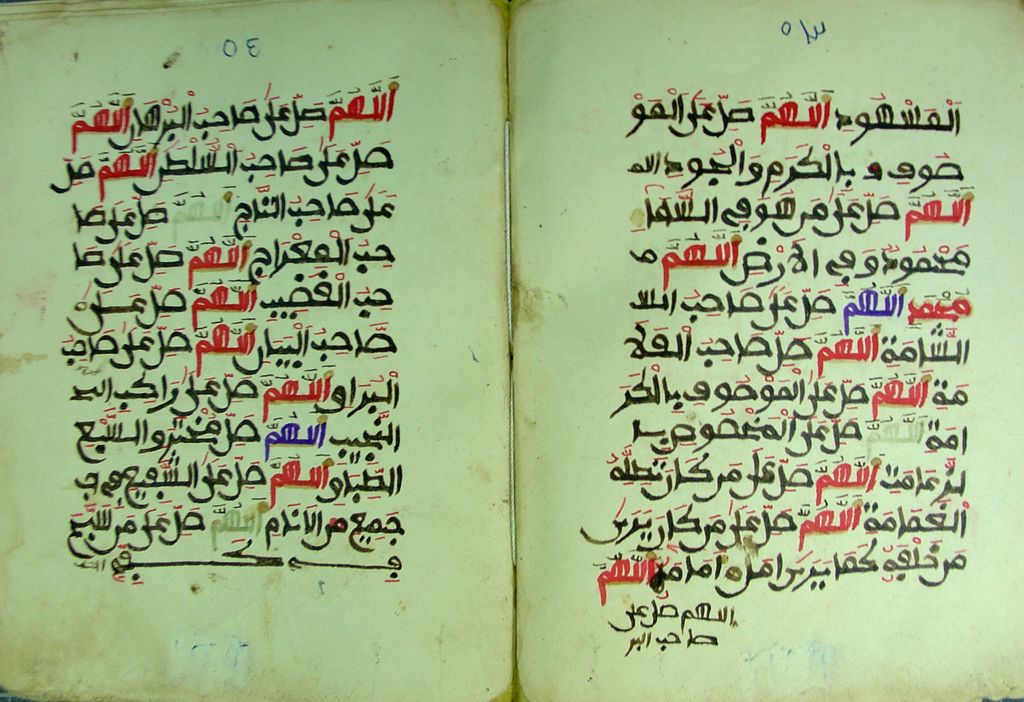 المشهود اللهم صل على المو
صوف بالكرم والجود
اللهم صل على من هو في السما
محمود وفي الارض اللهم
اللهم صل على صاحب
الشامة اللهم صل على صاحب العلا
مة اللهم صل على الموصوف بالكر
امة اللهم صل على المخصوص با
لزعامة اللهم صل على من كان تظله
الغمامة اللهم صل على من كان يرى
من خلفه كما يرى من امامه اللهم
اللهم صل على
صاحب البر
اللهم صل على صاحب البرهان اللهم
صل على صاحب السلطن اللهم صل
على صاحب التاج اللهم صل على صا
حب المعراج اللهم صل على صا
حب القضيب اللهم صل على
صاحب البيان اللهم صل على صاحب
البراق اللهم صل على راكب
النجيب اللهم صل مخترق السبع
الطباق اللهم صل على الشفيع في
جميع الانام اللهم صل على من سبح
في كفه